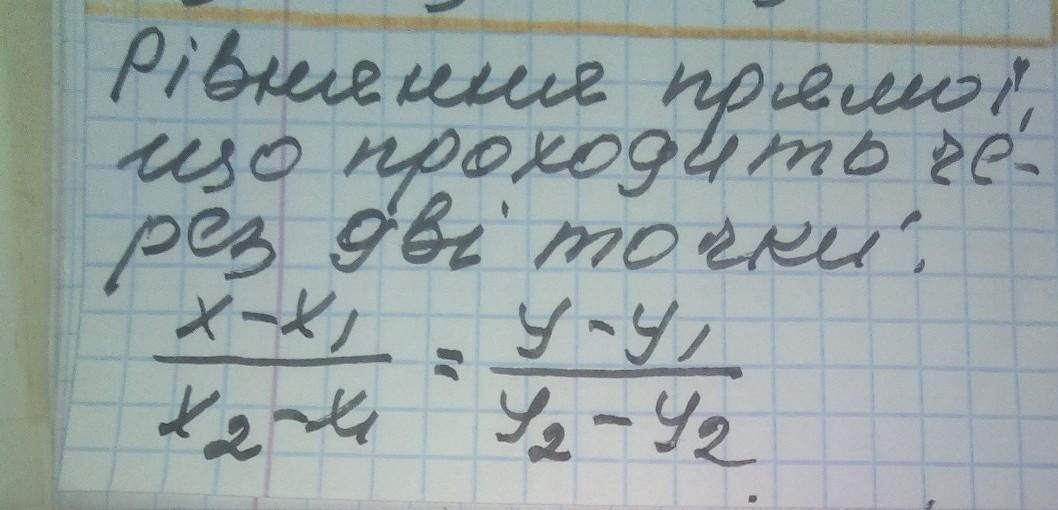 Рівняння прямої,
що проходить че-
рез дві точки:
x-x₁ / x₂-x₁ = y-y₁ / y₂-y₂